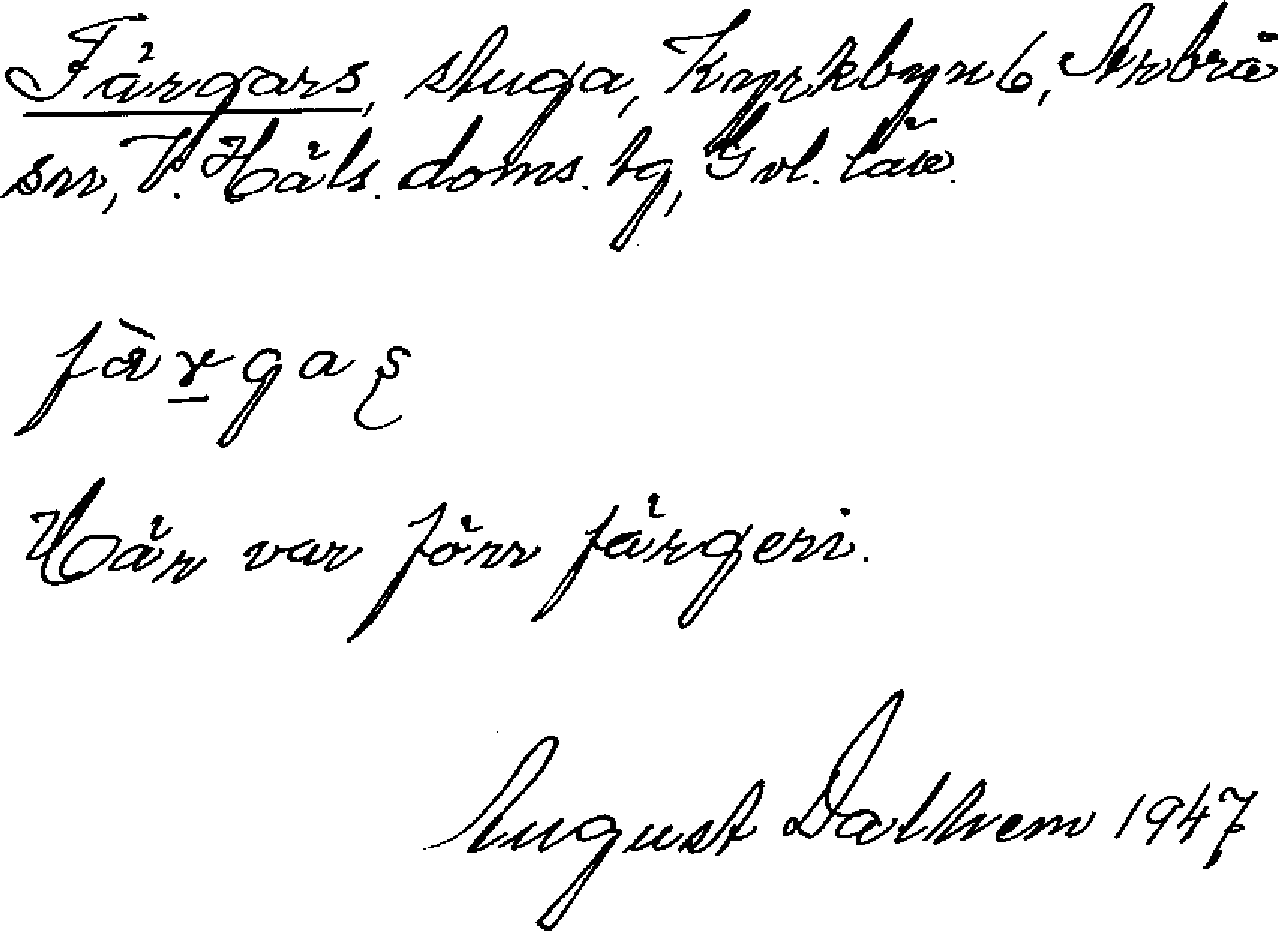 Färgars, stuga, Kyrkbyn 6, Arbrå
sn, V. Häls. doms. tg, Gvl. län.
fàr̲gaʂ
Här var förr färgeri.
August Dalhem 1947